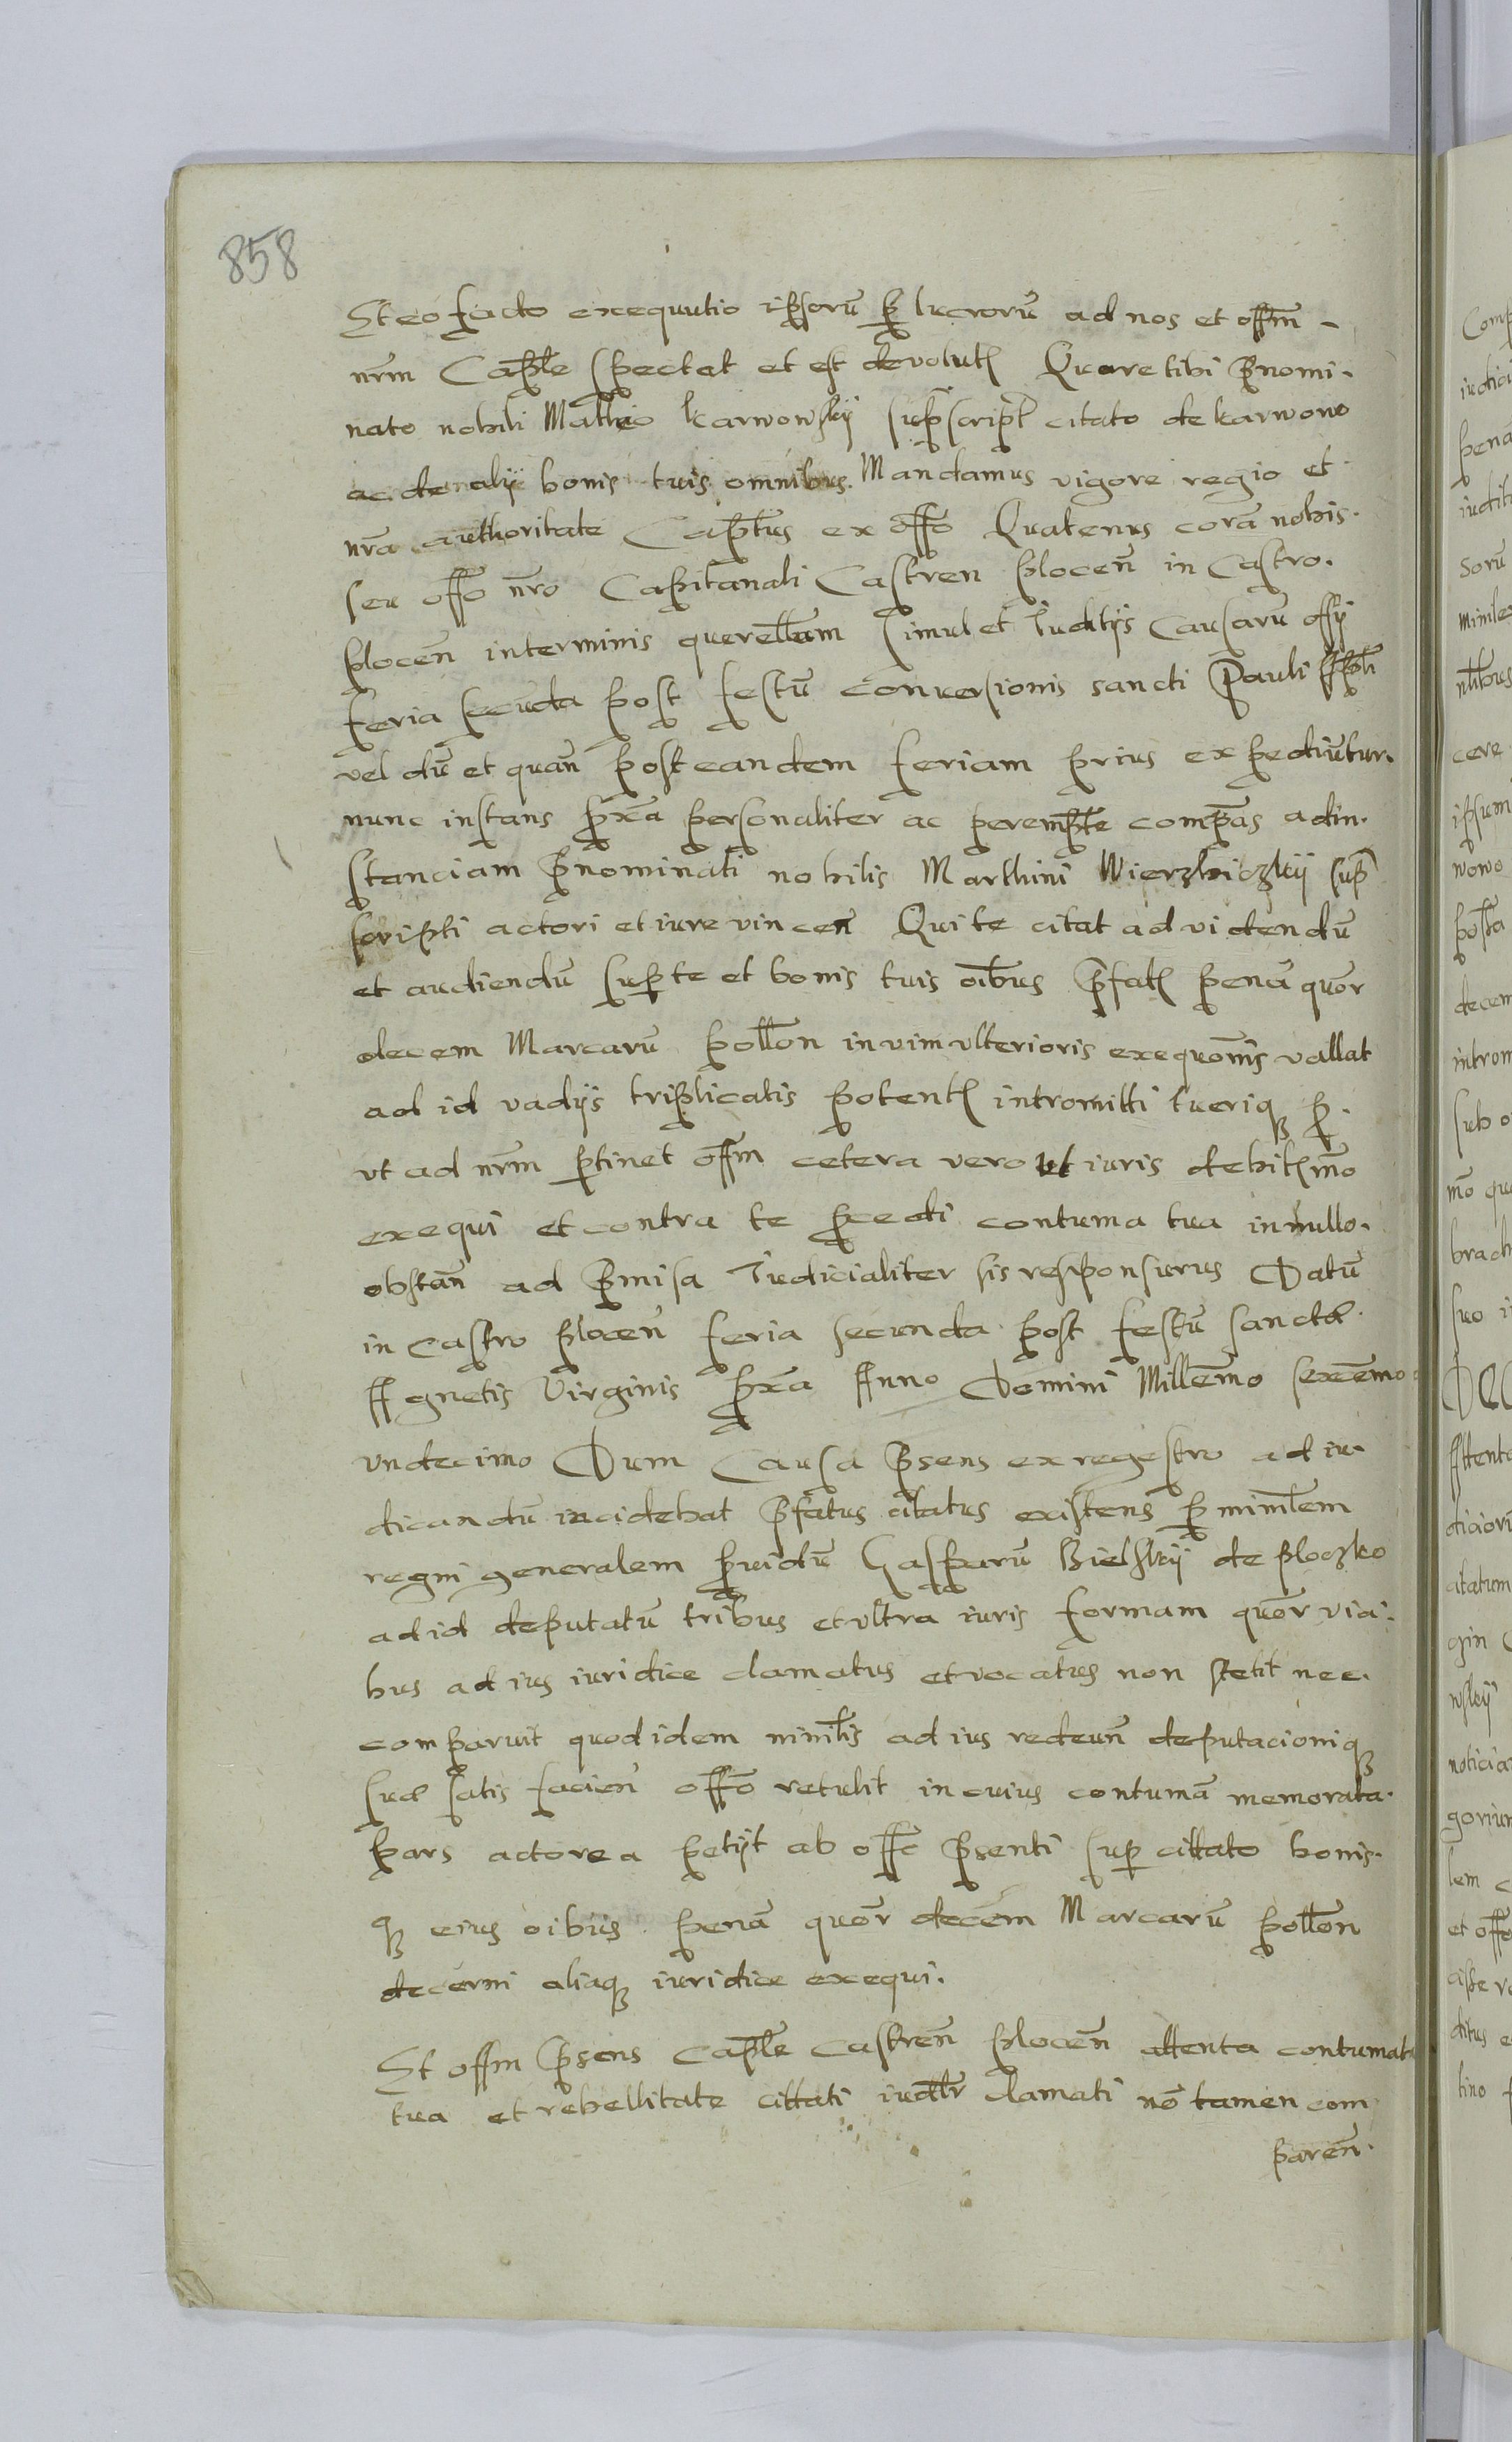 858
Et eo facto exequutio ip̃sorũ ꝑ lucrorũ ad nos et offm̃
nr̃m Cap̃le spectat et est devolutʒ Quare tibi p̃nomi-
nato nobili Matheo Karwowskÿ sup̃script̃ citato de Karwowo
ac de alÿ bonis tuis omnibus Mandamus vigore regio et
nr̃a authoritate Cap̃tus ex offõ Quatenus corã nobis
seu offõ nr̃o Capitanali Castren plocen̄ in Castro
plocen̄ in terminis querellarum simul et Iuditÿs Causarũ offÿ
feria secũda post festũ conversionis sancti Pauli App̃li
vel dũ et quan̄ post eandem feriam prius expediũtur
nunc instans ꝓx̃a personaliter ac perempt̃e comp̃as ad in-
stanciam p̃nominati nobilis Marthini Wierzbiczkÿ sup̃
scripti actori et iure vincen̄ Qui te citat ad videndũ
et audiendũ suꝑ te et bonis tuis oĩbus p̃fatʒ penã quõr
decem Marcarũ pollon̄ in vim ulterioris exequõnis vallat
ad id vadÿs triplicatis potentʒ intromitti tueriqʒ ꝑ
ut ad nr̃m ꝑtinet offm̃ cetera vero ut iuris debitʒ mõ
exequi et contra te ꝓcedi contuma tua in nullo
obstan̄ ad p̃misa Iudicialiter sis responsurus Datũ
in Castro plocen̄ feria secunda post festũ sanctæ
Agnetis Virginis ꝓx̃a Anno Domini Millẽmo sexcẽmo
undecimo Dum Causa p̃sens ex regestro ad iu-
dicandũ incidebat p̃fatus citatus existens ꝑ minl̃em
regni generalem ꝓvidũ Gasparũ Bielskÿ de ploczko
ad id deputatũ tribus et ultra iuris formam quõr via-
bus ad ius iuridice clamatus et vocatus non stetit nec
comparuit quod idem minl̃is ad ius redeun̄ deputacioniqʒ
suæ satis facien̄ offõ retulit in cuius contumã memorata
pars actorea petÿt ab offõ p̃senti suꝑ cittato bonis-
qʒ eius oibus penã quõr decem Marcarũ pollon̄
decerni aliaqʒ iuridice exequi.
Et offm̃ p̃sens Cap̃le Castren̄ plocen̄ attenta contumat
tua et rebellitate cittati iudl̃r clamati nõ tamen com
paren̄